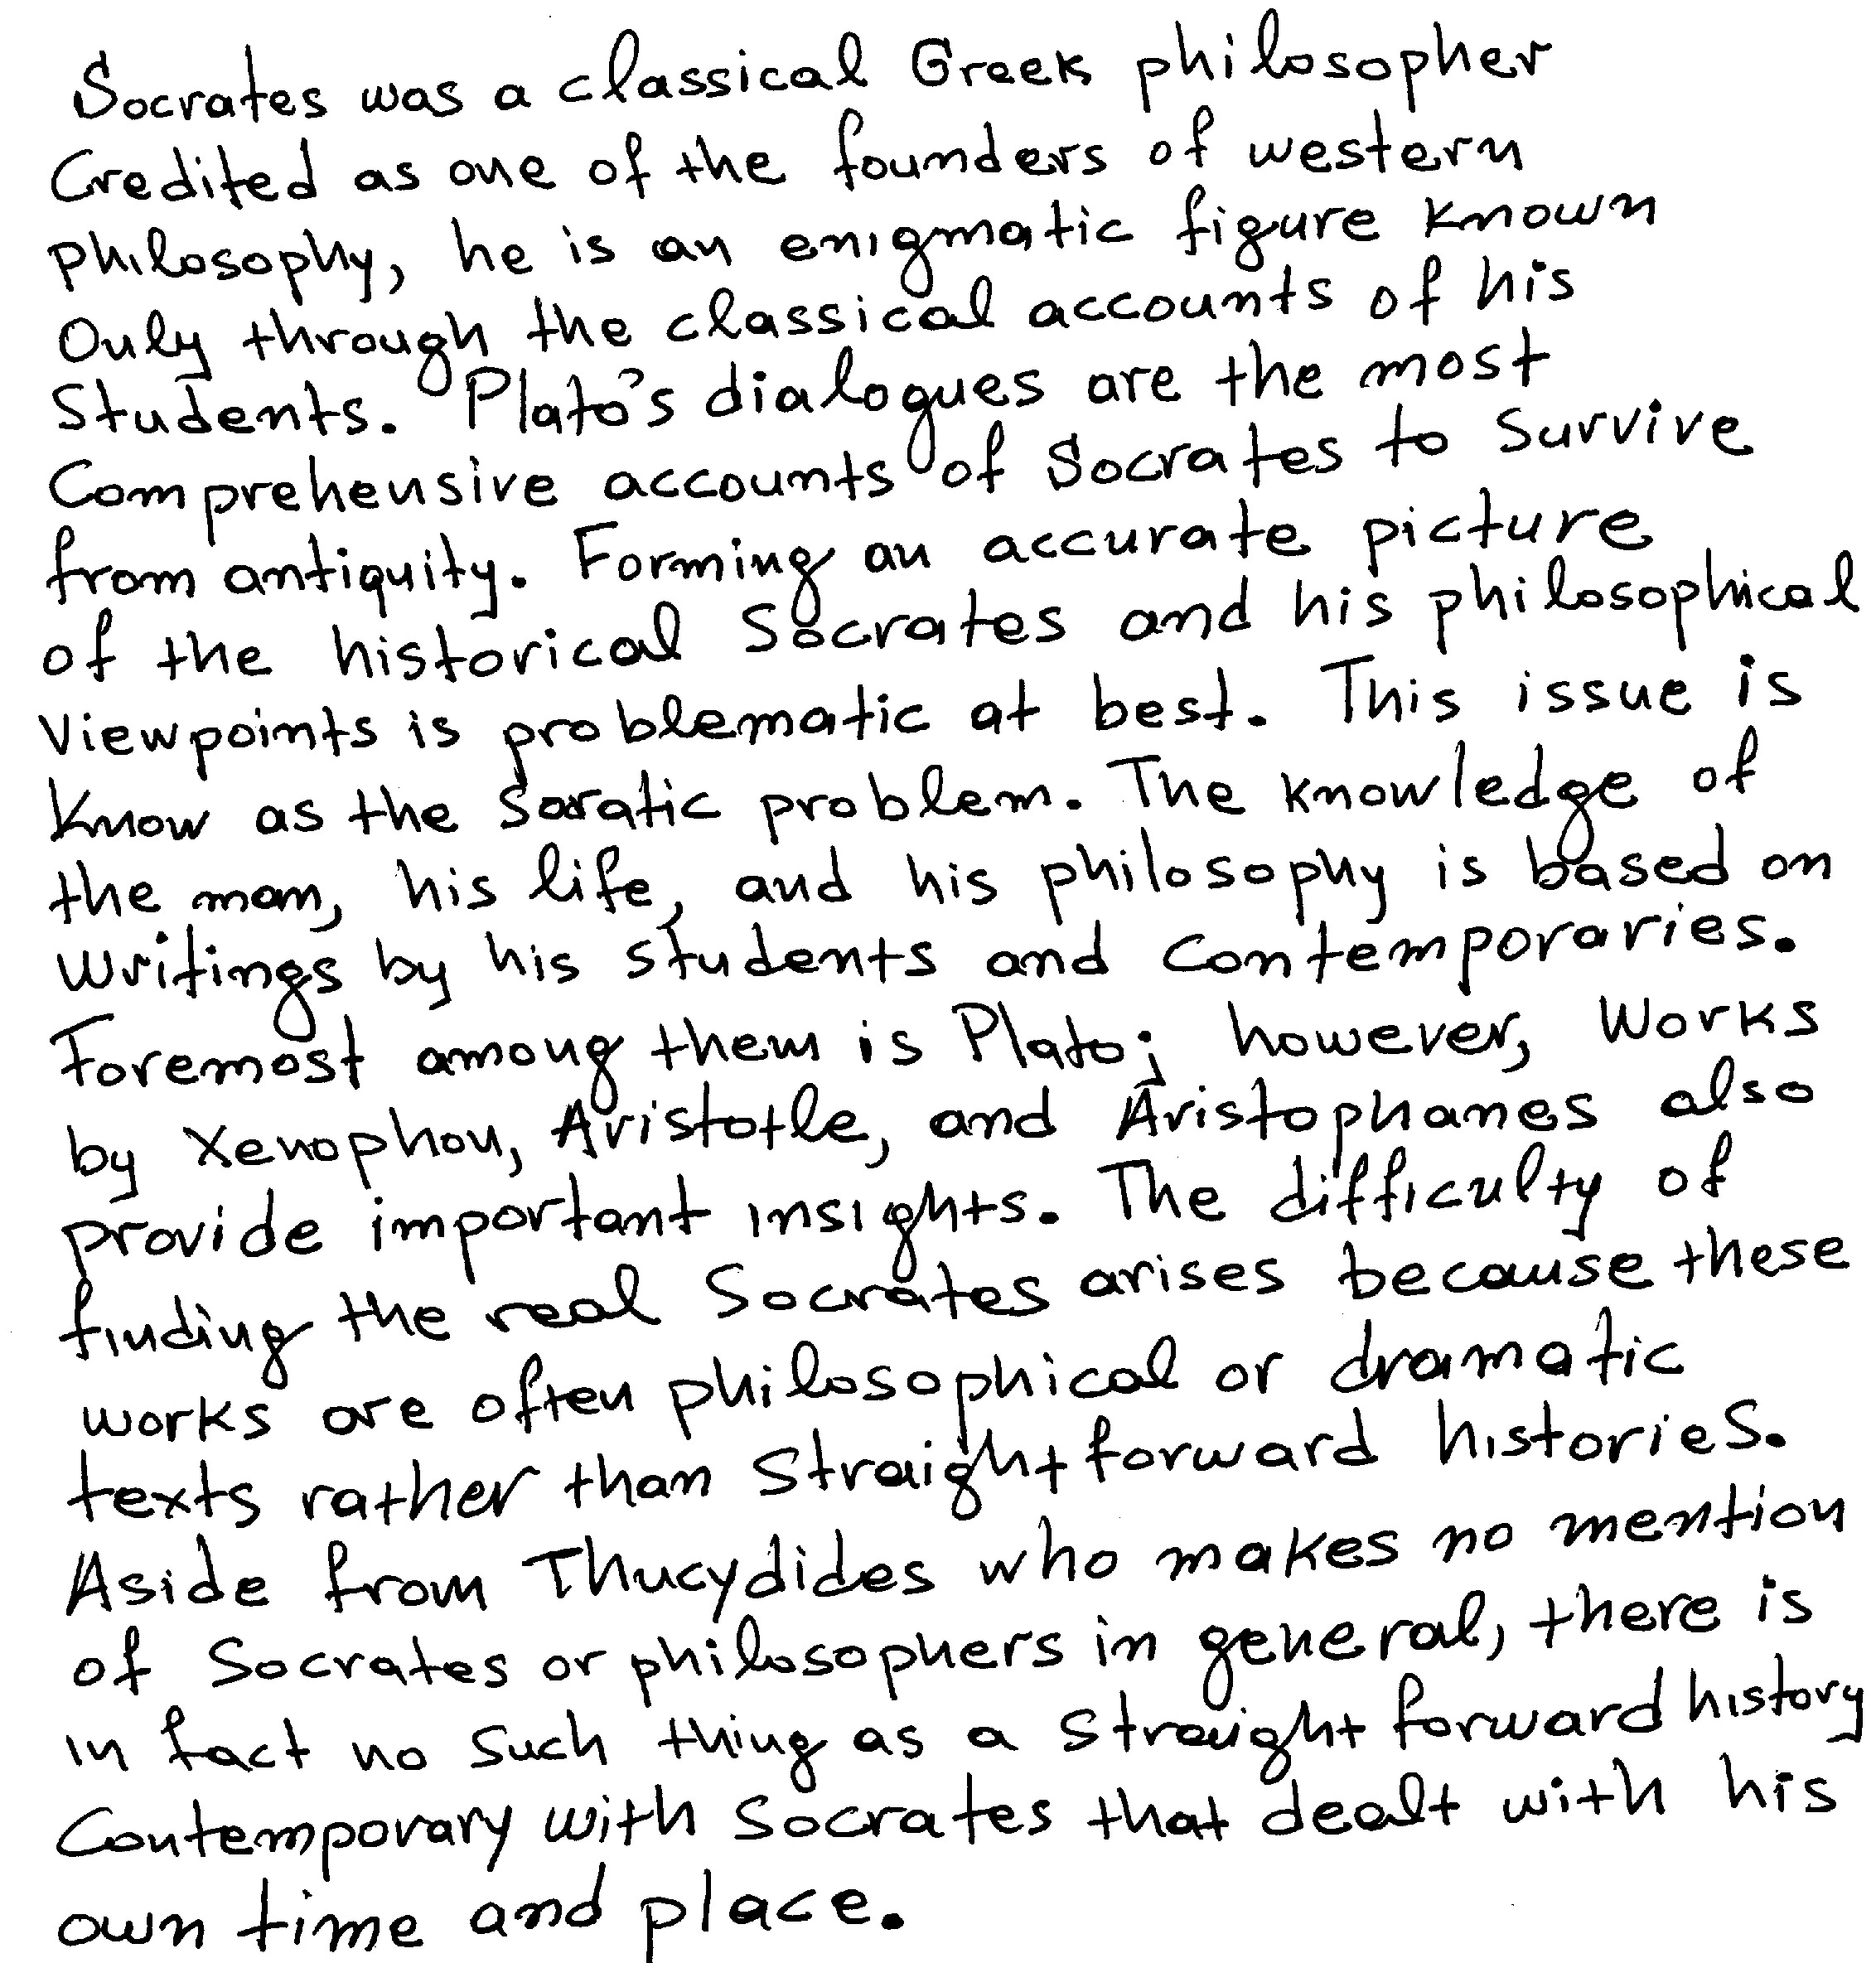 Socrates was a classical Greek philosopher
Credited as one of the founders of western
philosophy, he is an enigmatic figure known
Only through the classical accounts of his
Students. Plato's dialogues are the most
Comprehensive accounts of Socrates to Survive
from antiquity. Forming an accurate picture
of the historical Socrates and his philosophical
Viewpoints is problematic at best. This issue is
Know as the Soratic problem. The knowledge of
the man, his life, and his philosophy is based on
Writings by his students and Contemporaries.
Foremost among them is Plato; however, Works
by Xenophon, Aristotle, and Aristophanes also
provide important insights. The difficulty of
finding the real Socrates arises because these
works are often philosophical or dramatic
texts rather than Straight forward histories.
Aside from Thucydides who makes no mention
of Socrates or philosophers in general, there is
in fact no such thing as a Straight forward history
Contemporary with Socrates that dealt with his
own time and place.